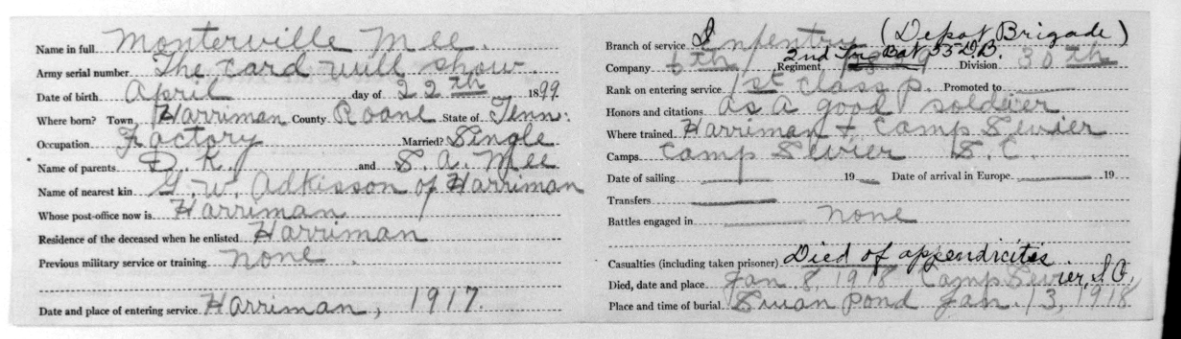 Name in full Monterville Mee.
Army serial number The card will show
Date of birth April day of 22th 1899.
Where born? Town Harriman County Roane State of Tenn.
Occupation Factory Married? Single
Name of parents D. K. and S. A. Mee
Name of nearest kin G. W. Adkisson of Harriman
Whose post-office now is Harriman
Residence of the deceased when he enlisted Harriman
Previous military service or training none.
Date and place of entering service Harriman, 1917.
Branch of service Infentry (Depot Brigade)
Company 6th Regiment 2nd Trg Bat 55 D.B. Division 30th
Rank on entering service 1st Class P. Promoted to
Honors and citations as a good soldier
Where trained Harriman & Camp Sevier
Camps Camp Sevier S. C.
Date of sailing 19 Date of arrival in Europe 19
Transfers
Battles engaged in none
Casualties (including taken prisoner) Died of appendicites
Died, date and place Jan 8, 1918 Camp Sevier, S.C,
Place and time of burial Swan Pond Jan. 13, 1918